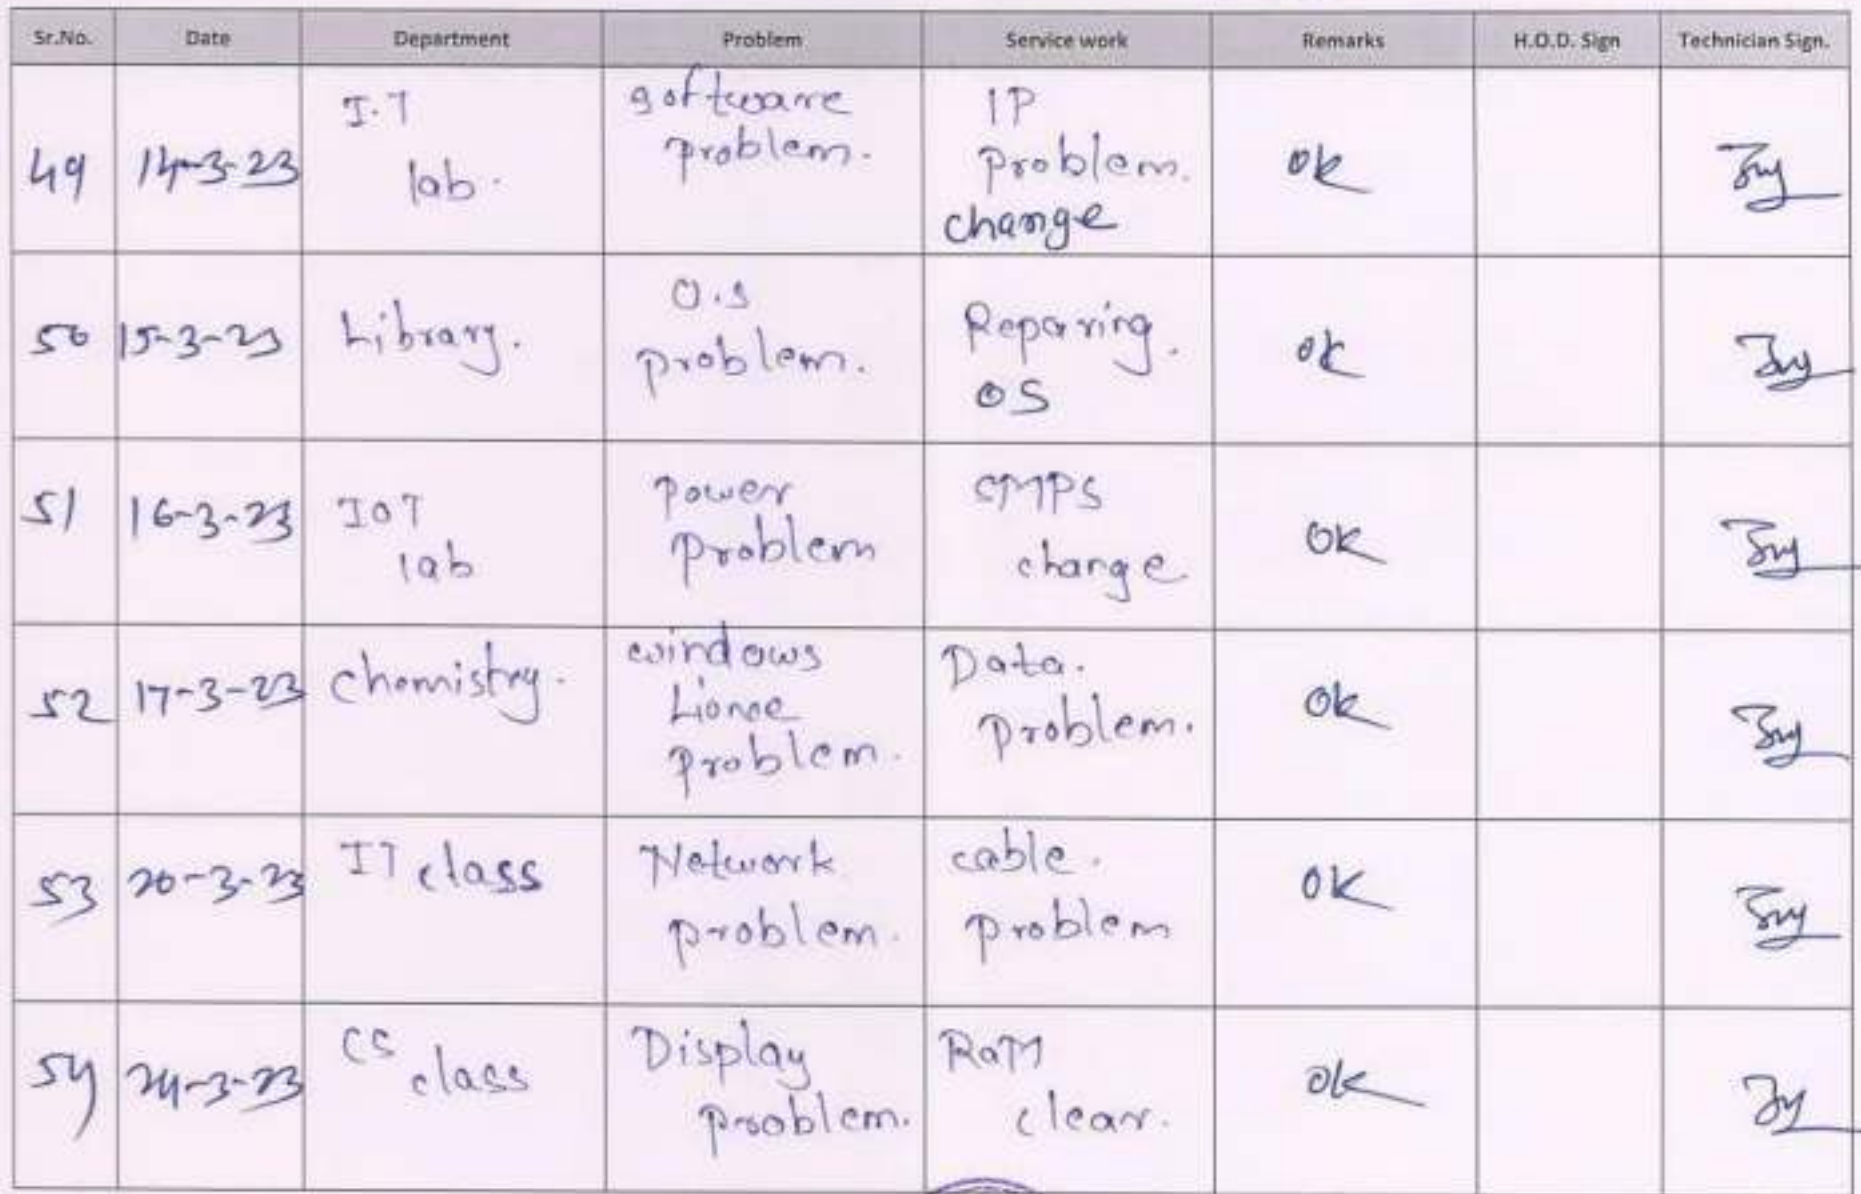 Sr.No. Date Department Problem Service work Remarks H.O.D. Sign Technician Sign.
49 14-3-23 I.T lab. software problem. IP problem. change ok
50 15-3-23 Library. O.S problem. Reparing. OS ok
51 16-3-23 IOT lab power problem SMPS change OK
52 17-3-23 chemistry. windows problem. Data. problem. Ok
53 20-3-23 IT class Network problem. cable. problem OK
54 24-3-23 CS class Display problem. RaM clear. Ok